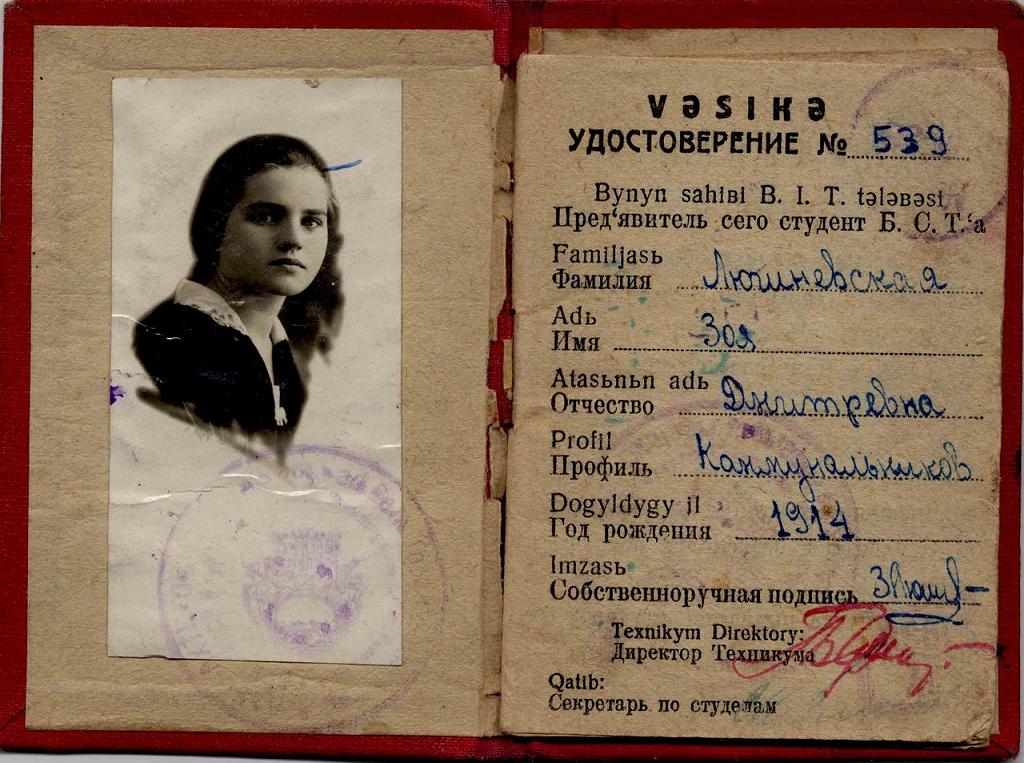 VƏSIHƏ
УДОСТОВЕРЕНИЕ № 539
Bynyn sahibi B. I. T. tələbəsi
Пред‘явитель сего студент Б. С. Т.‘а
Familjasь
Фамилия Лючиневская
Adь
Имя Зоя
Atasьnьn adь
Отчество Дмитревна
Profil
Профиль Коммунальников
Dogyldygy il
Год рождения 1914
Imzasь
Собственноручная подпись
Texnikym Direktory:
Директор Техникума
Qatib:
Секретарь по студелам